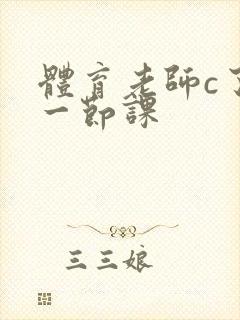 體育老師c了
一節課
三三娘